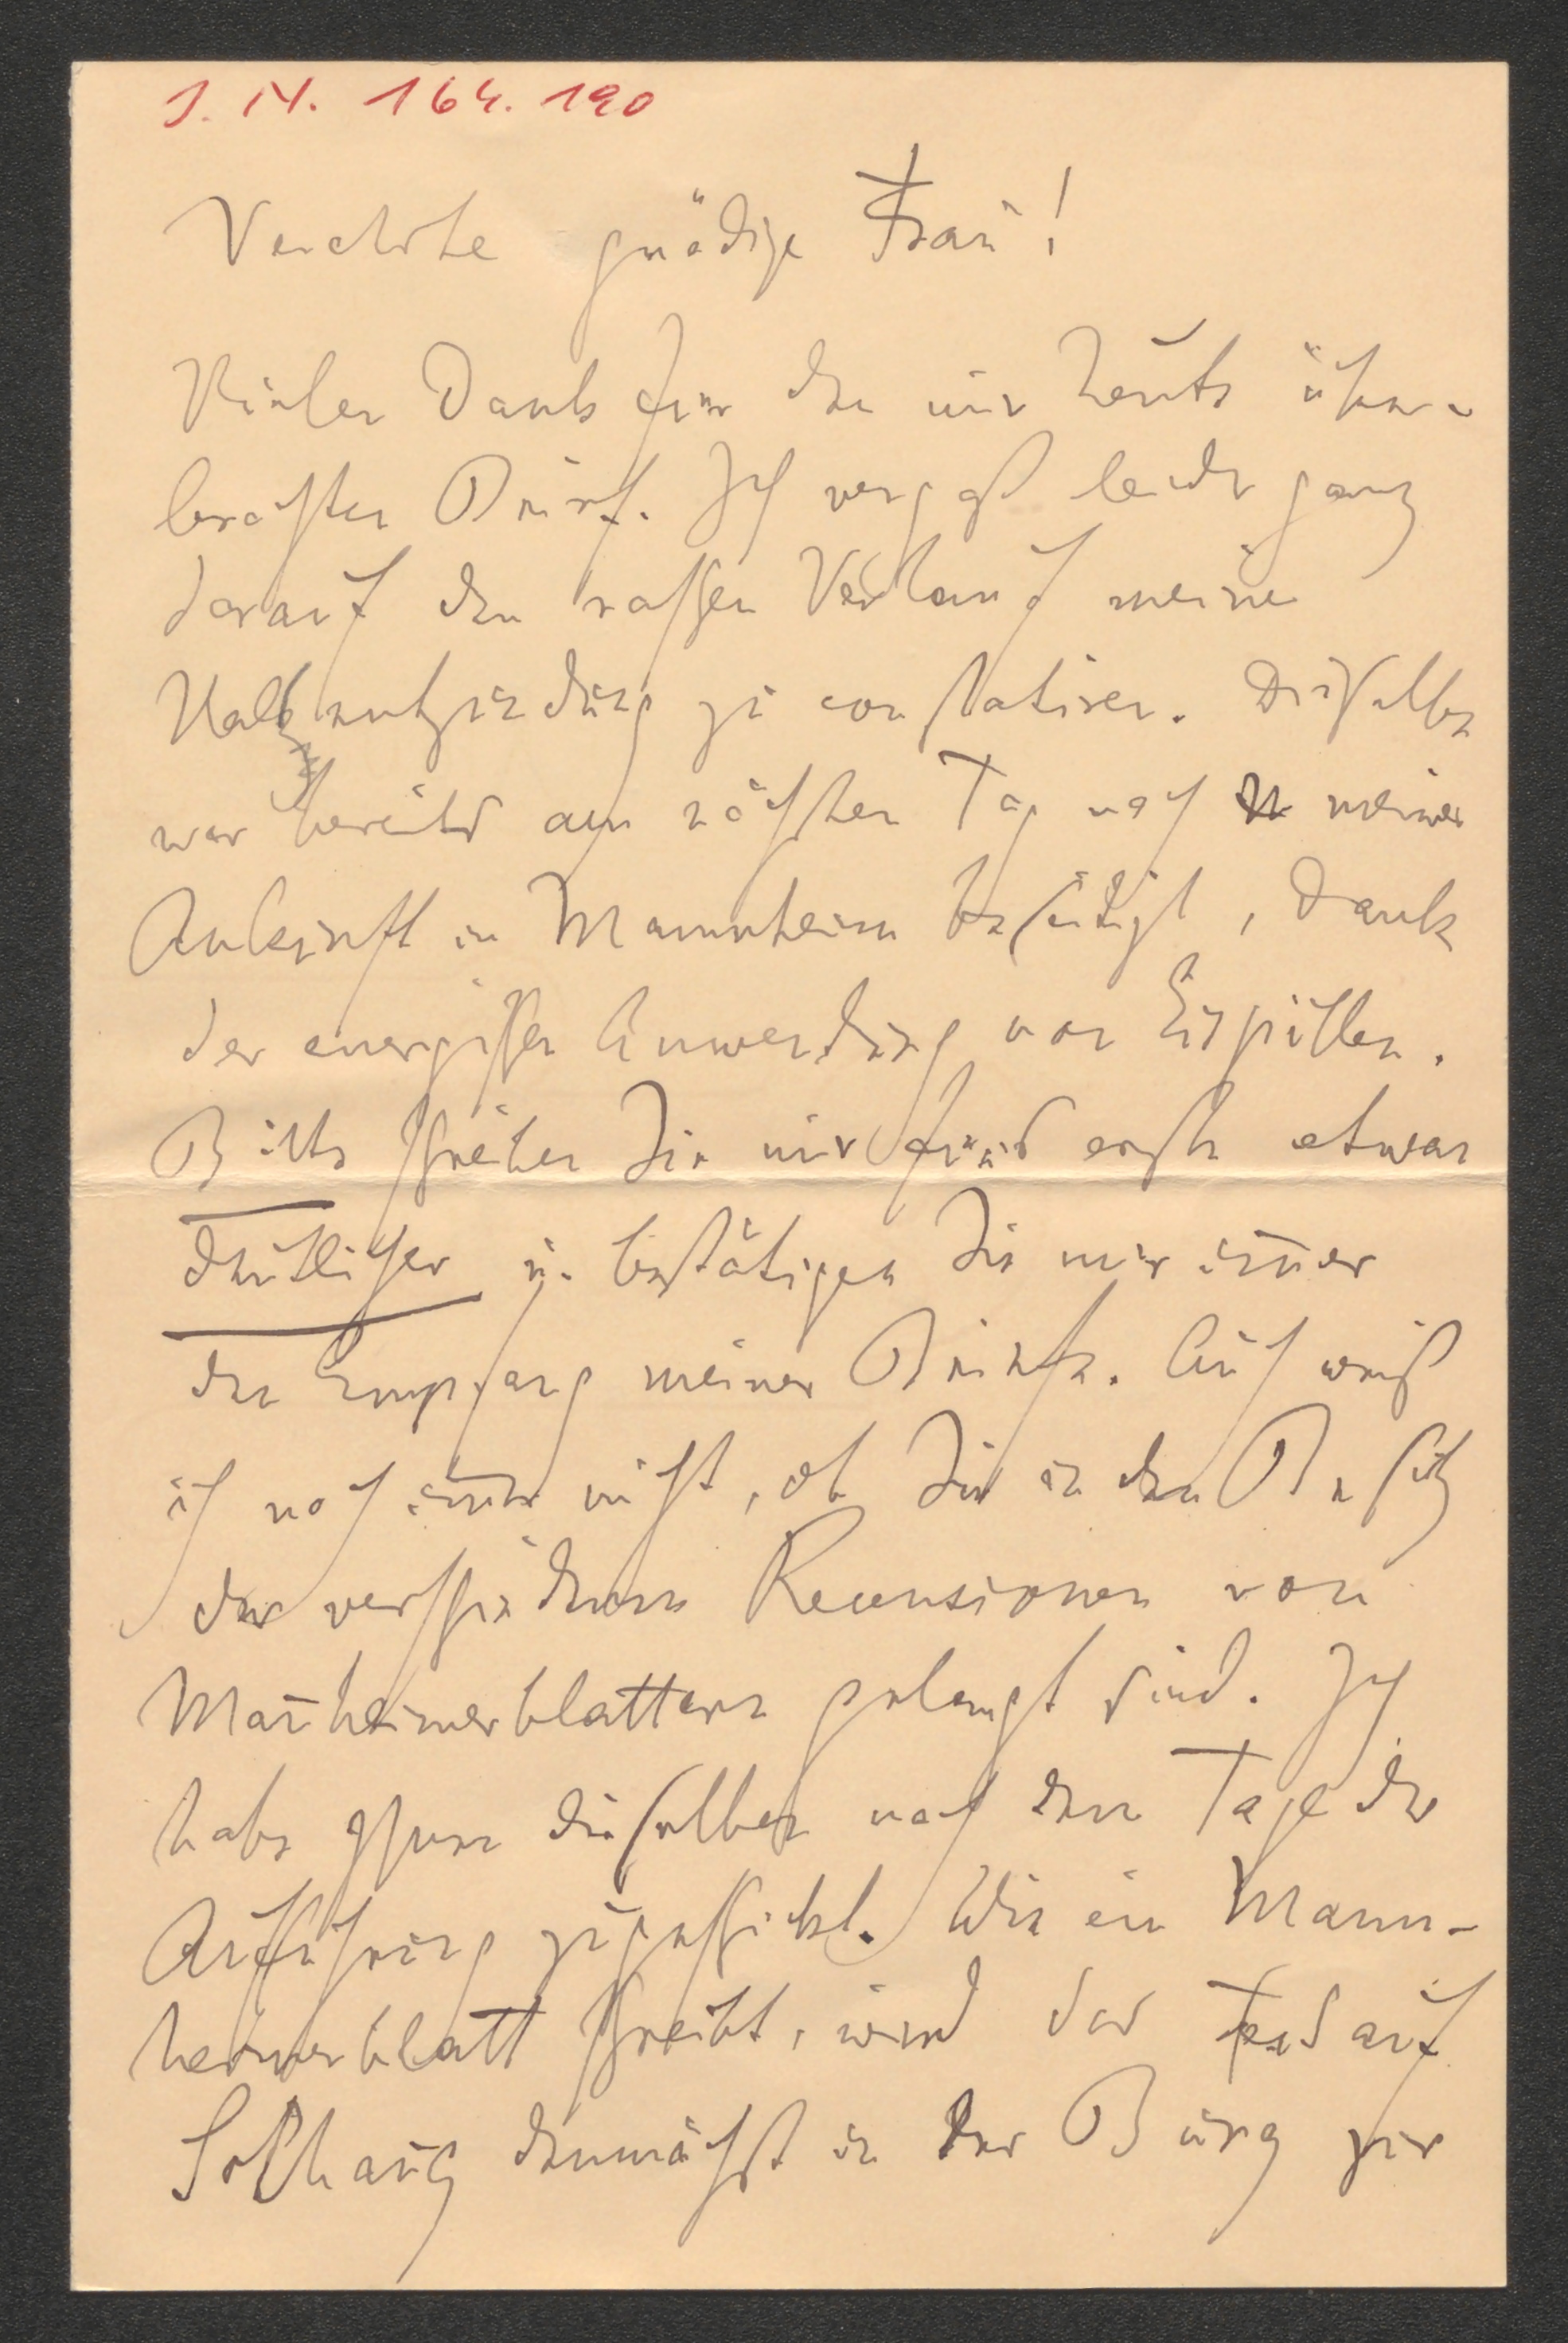 I. N. 164.190
Verehrte gnädige Frau!
Vielen Dank für den mir heute über-
brachten Brief. Ich vergaß leider ganz
darauf den raschen Verlauf meiner
Halsentzündung zu constatiren. Dieselbe
war bereits am nächsten Tag nach meiner
Ankunft in Mannheim beseitigt, Dank
der energischen Anwendung von Eispillen.
Bitte schreiben Sie mir für's erste etwas
deutlicher u. bestätigen Sie mir im̅er
den Empfang meiner Briefe. Auch weiß
ich noch im̅er nicht, ob Sie in den Besitz
der verschiedenen Recensionen von
Man̅heimerblattern gelangt sind. Ich
habe Ihnen dieselben nach dem Tage der
Aufführung zugeschickt. Wie ein Mann-
heimerblatt schreibt, wird das Fest auf
Solhaug demnächst in der Burg zur